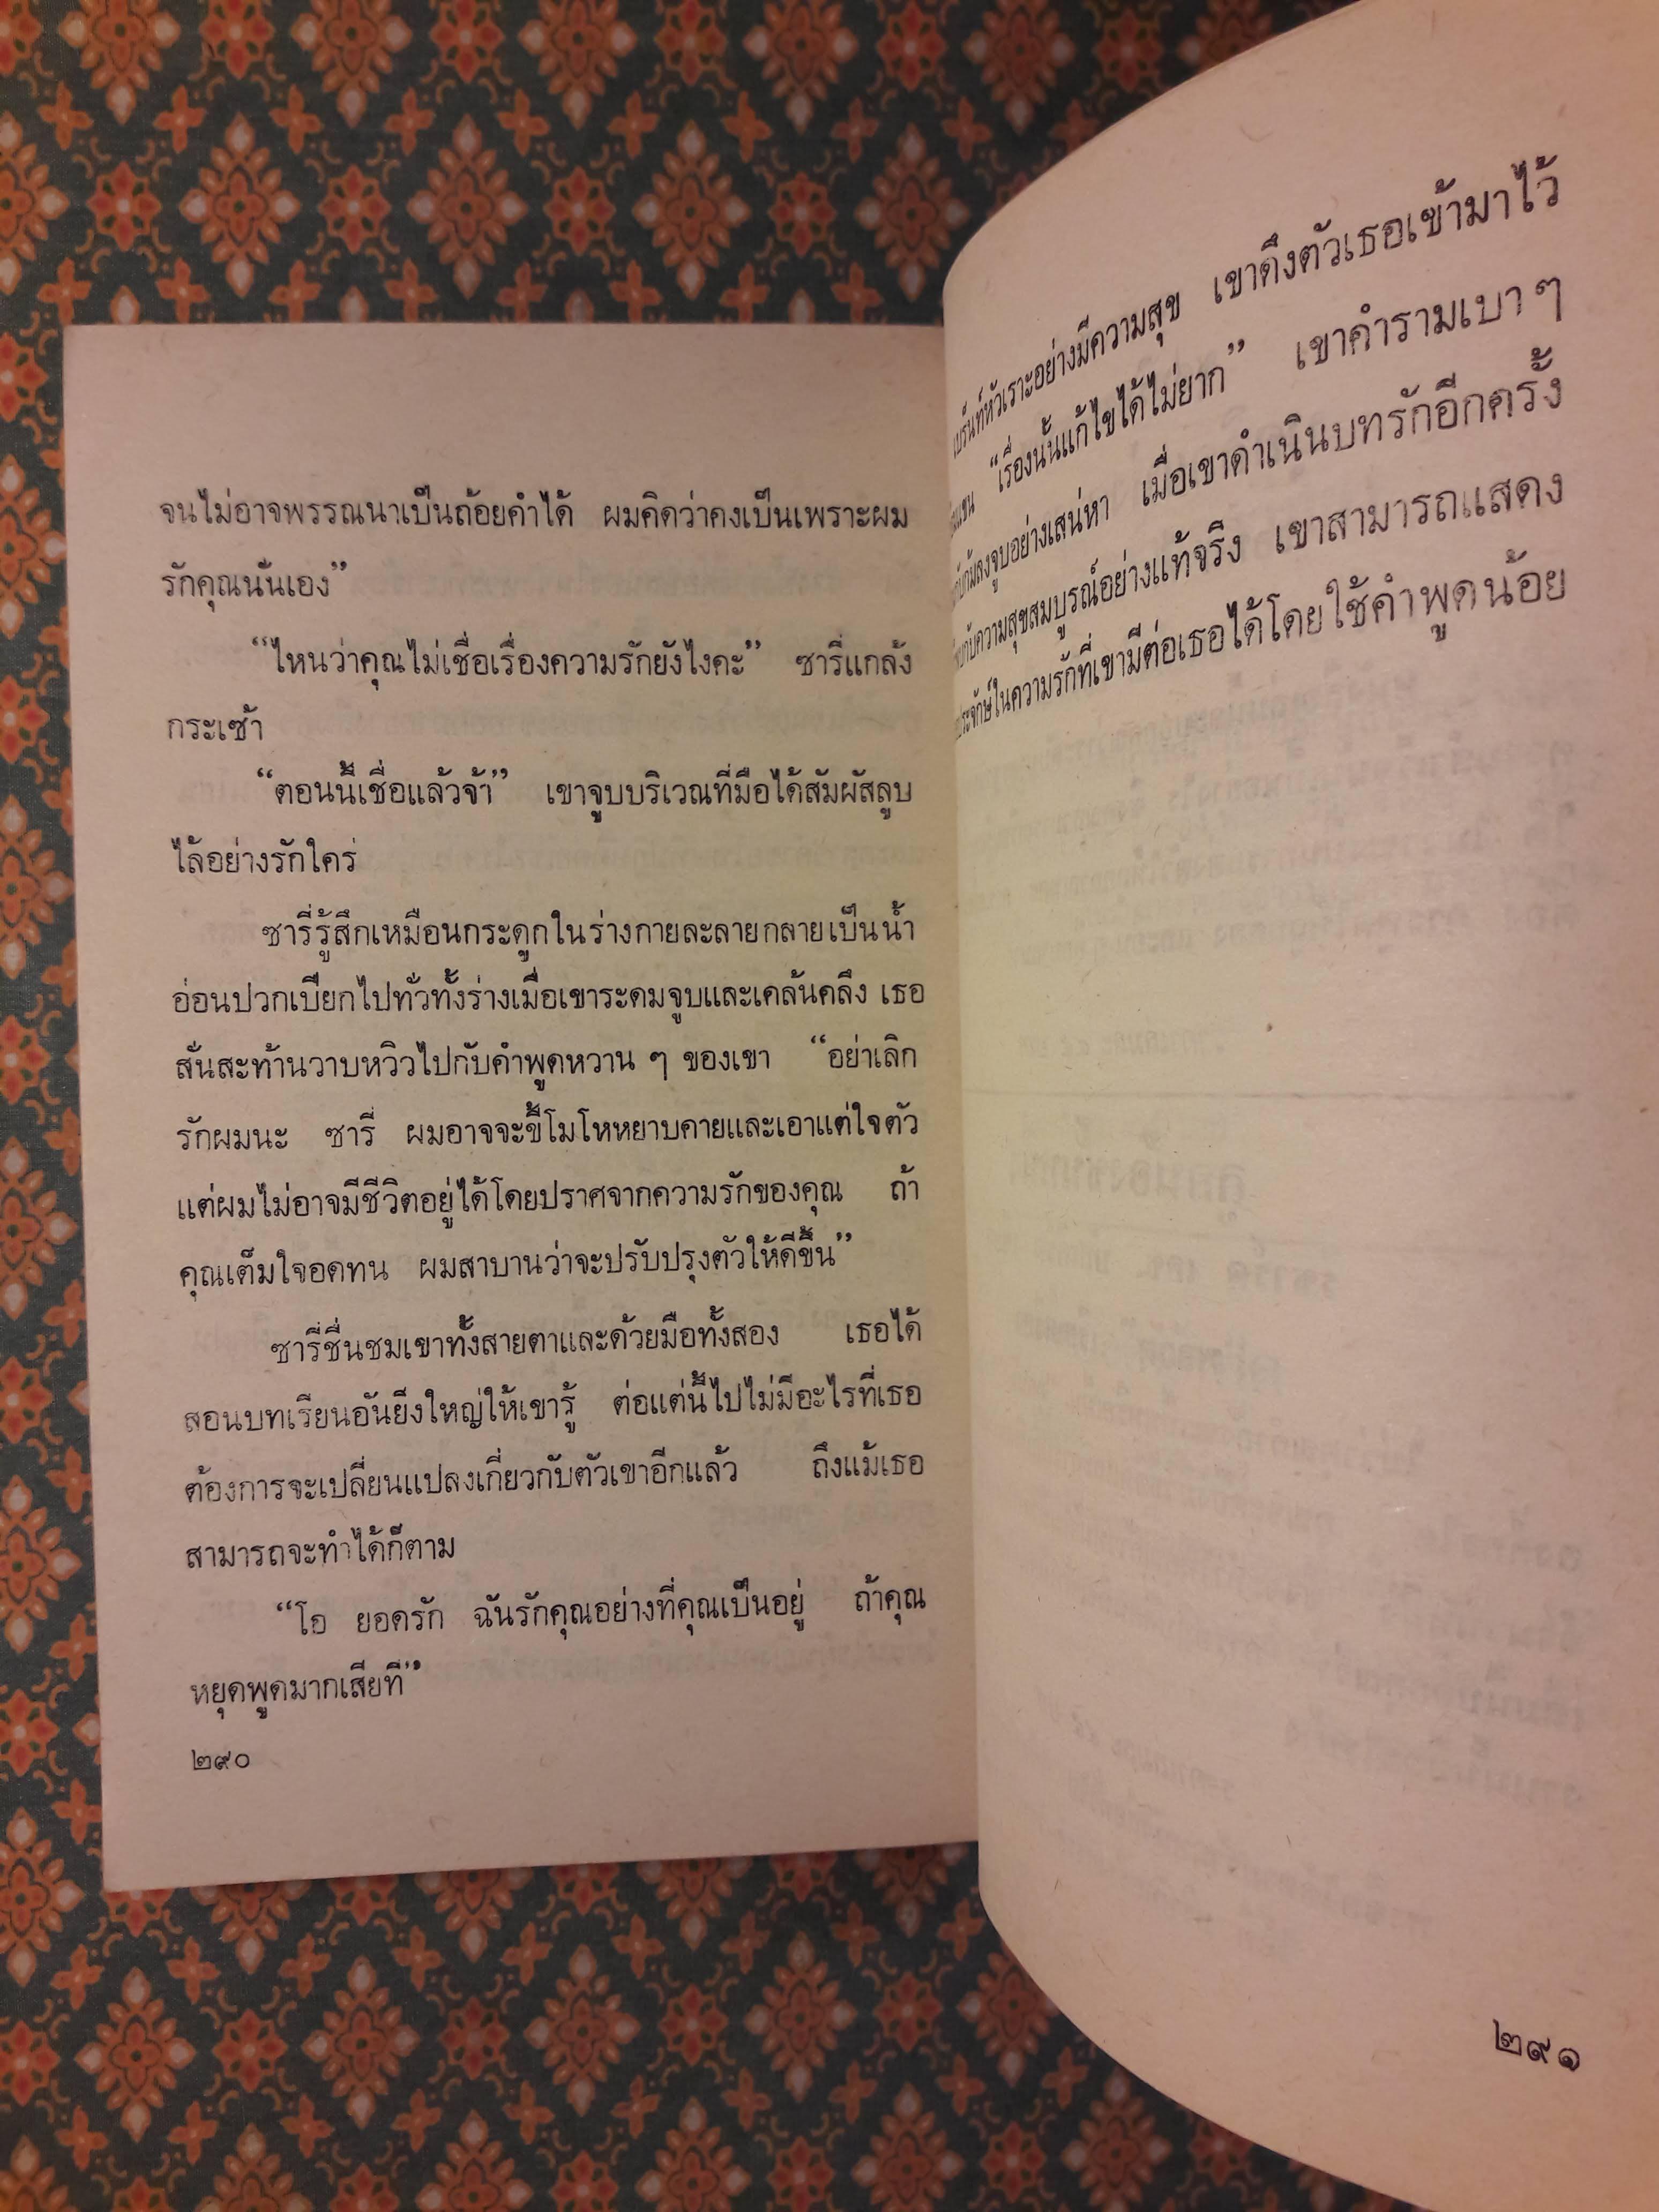 จนไม่อาจพรรณนาเป็นถ้อยคำได้ ผมคิดว่าคงเป็นเพราะผม
รักคุณนั่นเอง”
“ไหนว่าคุณไม่เชื่อเรื่องความรักยังไงคะ” ซารี่แกล้ง
กระเซ้า
“ตอนนี้เชื่อแล้วจ้า” เขาจูบบริเวณที่มือได้สัมผัสลูบ
ไล้อย่างรักใคร่
ซารี่รู้สึกเหมือนกระดูกในร่างกายละลายกลายเป็นน้ำ
อ่อนปวกเปียกไปทั่วทั้งร่างเมื่อเขาระดมจูบและเคล้นคลึง เธอ
สั่นสะท้านวาบหวิวไปกับคำพูดหวาน ๆ ของเขา “อย่าเลิก
รักผมนะ ซารี่ ผมอาจจะขี้โมโหหยาบคายและเอาแต่ใจตัว
แต่ผมไม่อาจมีชีวิตอยู่ได้โดยปราศจากความรักของคุณ ถ้า
คุณเต็มใจอดทน ผมสาบานว่าจะปรับปรุงตัวให้ดีขึ้น”
ซารี่ชื่นชมเขาทั้งสายตาและด้วยมือทั้งสอง เธอได้
สอนบทเรียนอันยิ่งใหญ่ให้เขารู้ ต่อแต่นี้ไปไม่มีอะไรที่เธอ
ต้องการจะเปลี่ยนแปลงเกี่ยวกับตัวเขาอีกแล้ว ถึงแม้เธอ
สามารถจะทำได้ก็ตาม
“โอ ยอดรัก ฉันรักคุณอย่างที่คุณเป็นอยู่ ถ้าคุณ
หยุดพูดมากเสียที”
๒๙๐
เบร้นท์หัวเราะอย่างมีความสุข เขาดึงตัวเธอเข้ามาไว้
“เรื่องนั้นแก้ไขได้ไม่ยาก” เขาคำรามเบา ๆ
ก้มลงจูบอย่างเสน่หา เมื่อเขาดำเนินบทรักอีกครั้ง
กับความสุขสมบูรณ์อย่างแท้จริง เขาสามารถแสดง
ประจักษ์ในความรักที่เขามีต่อเธอได้โดยใช้คำพูดน้อย
๒๙๑